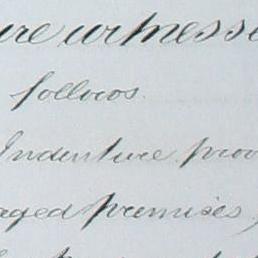 ure witnesse
follows.
Indenture prov
aged premises,